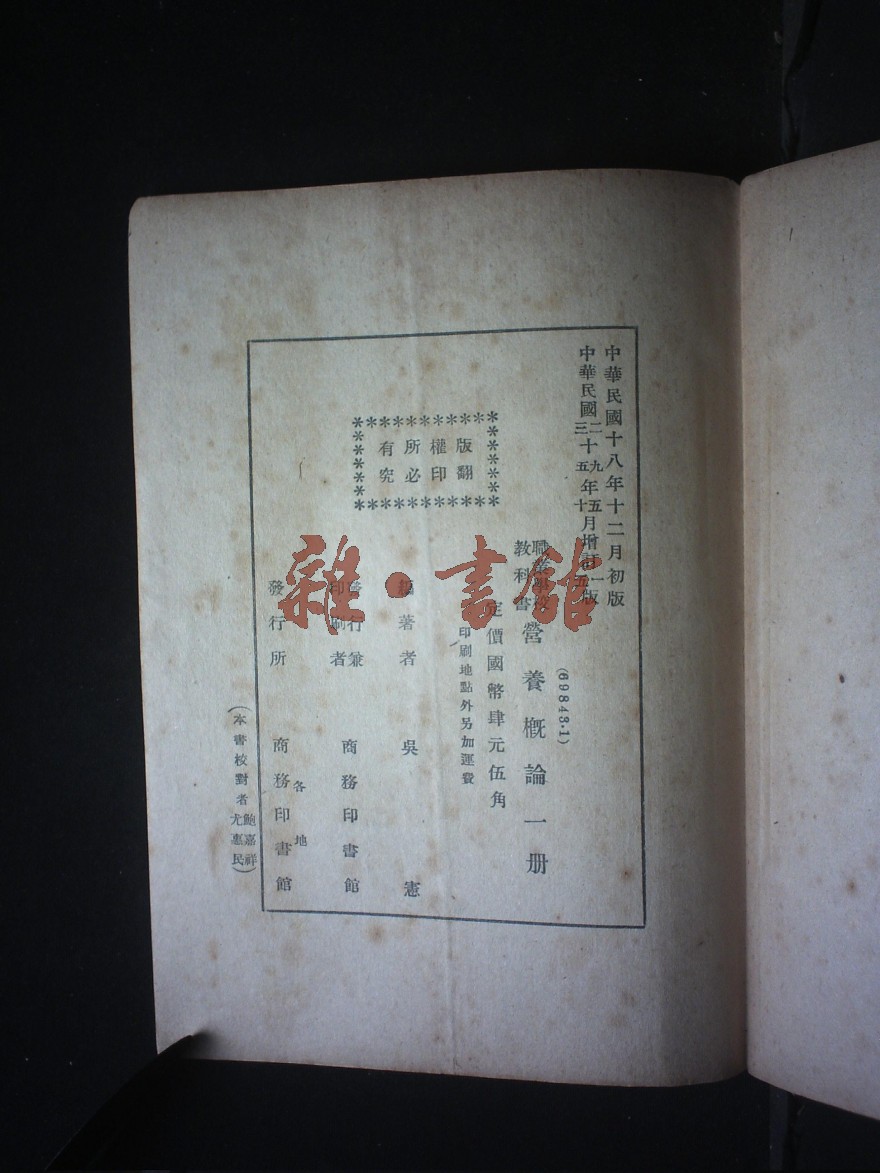 中華民國十八年十二月初版
中華民國二十九年五月增訂一版
三十五年十月
(69843·1)
職業學校
教科書
營養概論一册
定價國幣肆元伍角
印刷地點外另加運費
版權所有
翻印必究
編著者 吳憲
發行兼
印刷者
商務印書館
各地
發行所 商務印書館
(本書校對者
鮑嘉祥
尤惠民)
雜·書館